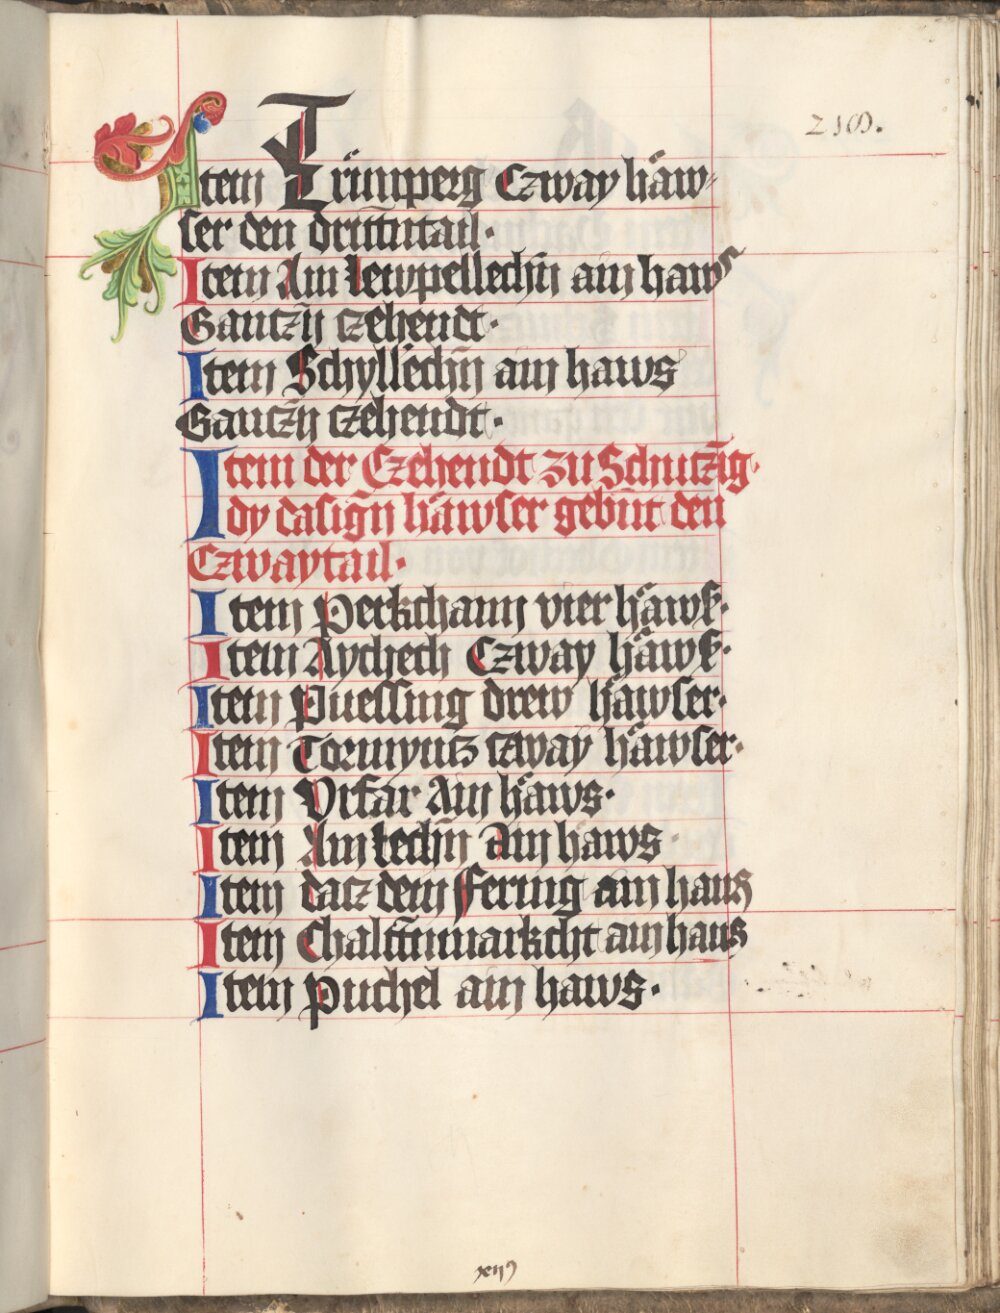 210.
Item Trünperg Czway häw-
ser den drittntail.
Item Am lewpellechn̄ ain haws
Ganczn̄ czehendt.
Item Schyllechn̄ ain haws
Ganczn̄ czehendt.
Item der Czehendt zu Schutzn̄g.
dy dasign̄ häwser gebn̄t den
Czwaytail.
Item Perkchaim vier häws.
Item Aychech Czway häws.
Item Puessing drew häwser.
Item Tormyntz czway häwser.
Item Vrfar Ain häws.
Item Am lechn̄ Ain haws.
Item datz dem Fering ain haus
Item Chaltn̄markcht ain haus
Item Puchel ain haws.
xii9